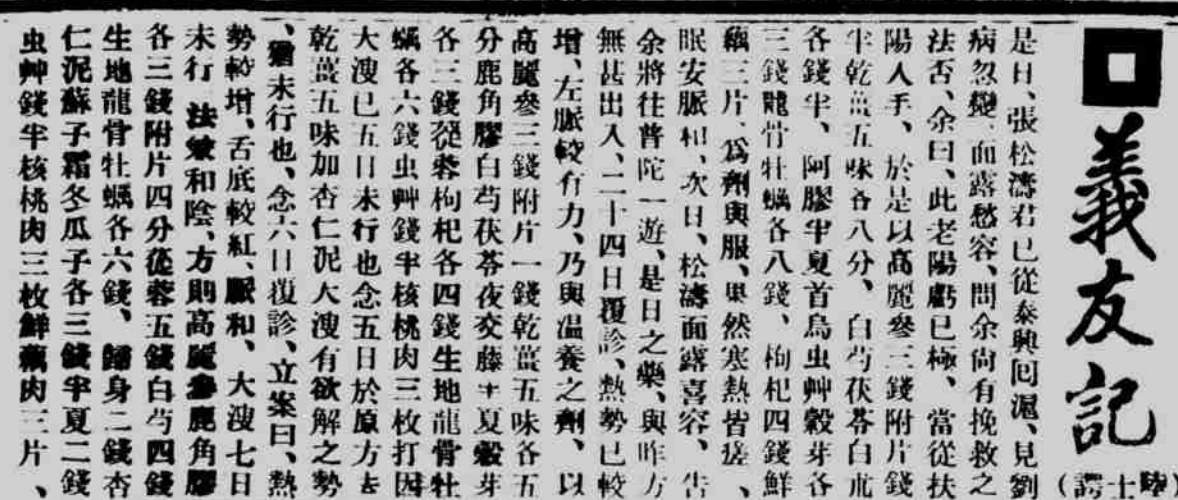 義友記
（陸士諤）
是日、張松濤君已從泰興囘滬、見劉
病忽變、面露愁容、問余尙有挽救之
法否、余曰、此老陽虧已極、當從扶
陽人手、於是以高麗參三錢附片錢
半乾薑五味各八分、白芍茯苓白朮
各錢半、阿膠半夏首烏虫艸穀芽各
三錢龍骨牡蠣各八錢、枸杞四錢鮮
藕三片、爲劑與服、果然寒熱皆瘥、
眠安脈和、次日、松濤面露喜容、告
余將往普陀一遊、是日之藥、與昨方
無甚出入、二十四日覆診、熱勢已較
增、左脈較有力、乃與溫養之劑、以
高麗參三錢附片一錢乾薑五味各五
分鹿角膠白芍茯苓夜交藤半夏穀芽
各三錢蓯蓉枸杞各四錢生地龍骨牡
蠣各六錢虫艸錢半核桃肉三枚打因
大溲已五日未行也念五日於原方去
乾薑五味加杏仁泥大溲有欲解之勢
、猶未行也、念六日覆診、立案曰、熱
勢較增、舌底較紅、脈和、大溲七日
未行、法煥和陰、方則高麗參鹿角膠
各三錢附片四分蓯蓉五錢白芍四錢
生地龍骨牡蠣各六錢、歸身二錢杏
仁泥蘇子霜冬瓜子各三錢半夏二錢
虫艸錢半核桃肉三枚鮮藕肉三片、